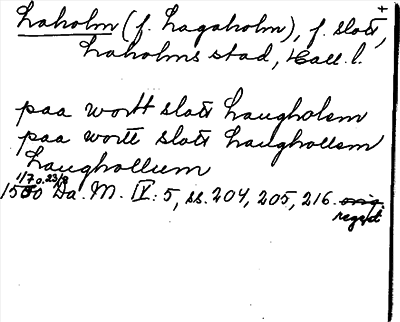 +
Laholm (f. Lagaholm), f. slott,
Laholms stad, Hall. l.
paa wortt slott Laugholsm
paa wortt slott Laughollsm
Laughollum
1/7 o. 23/8
1500 Da. M. IV: 5, ss. 204, 205, 216. orig.
regest